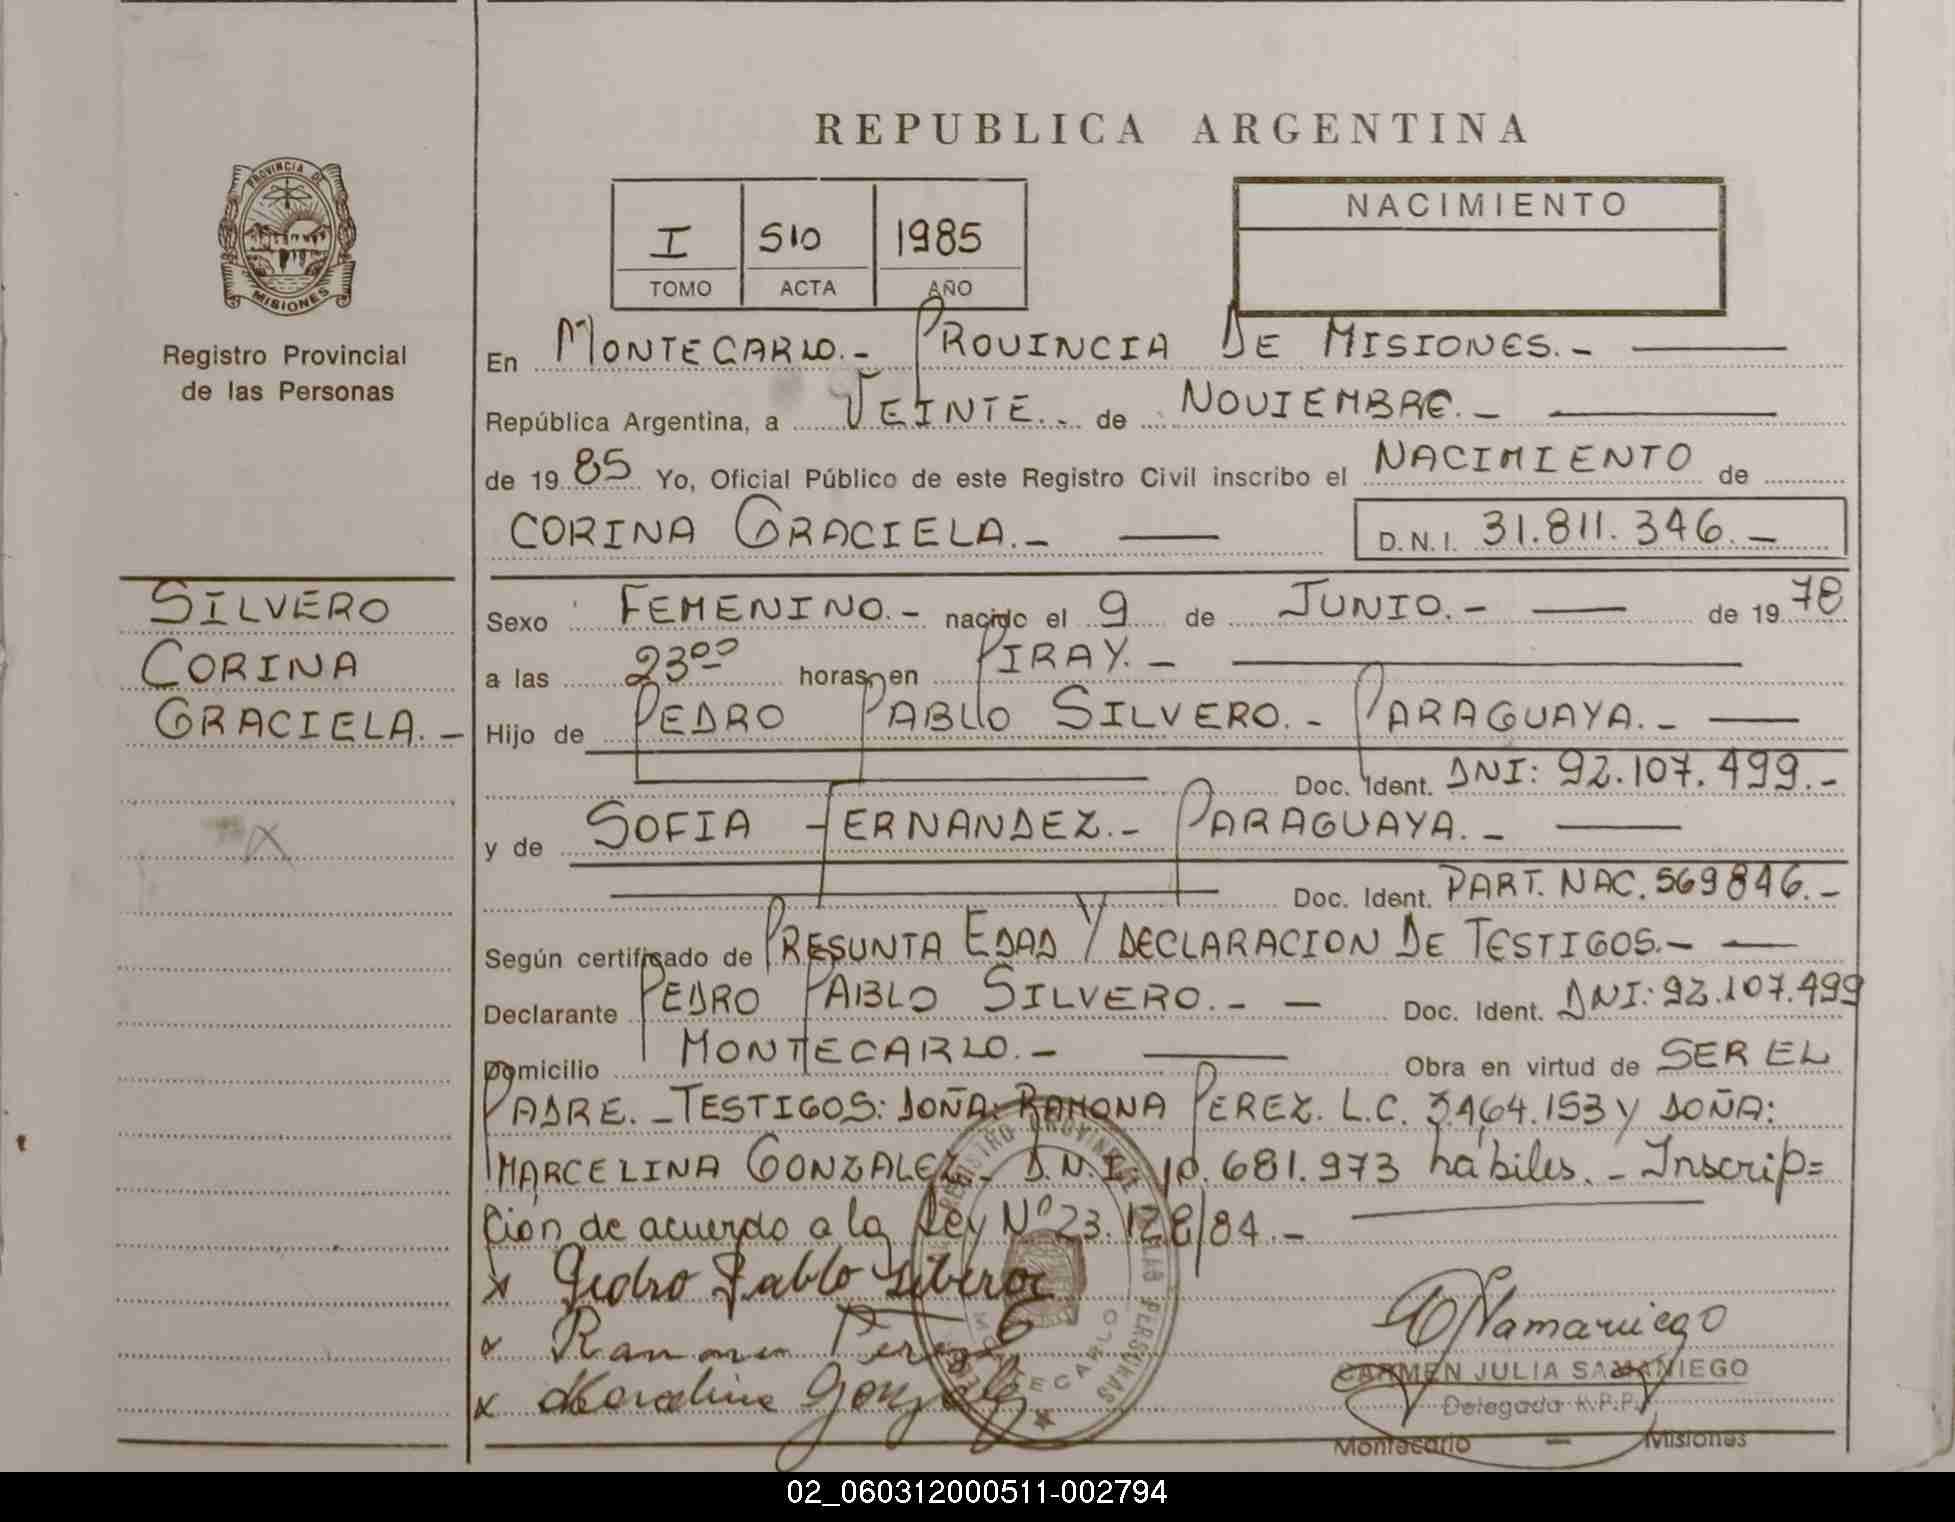 REPUBLICA ARGENTINA
PROVINCIA DE
MISIONES
Registro Provincial
de las Personas
I 510 1985
TOMO ACTA AÑO
NACIMIENTO
En MONTECARLO.- PROVINCIA DE MISIONES.-
República Argentina, a VEINTE.- de NOVIEMBRE.-
de 19 85 Yo, Oficial Público de este Registro Civil inscribo el NACIMIENTO de
CORINA GRACIELA.- D.N.I. 31.811.346.-
SILVERO
CORINA
GRACIELA.-
Sexo FEMENINO.- nacido el 9 de JUNIO.- de 19 78
a las 23⁰⁰ horas, en PIRAY.-
Hijo de PEDRO PABLO SILVERO.- PARAGUAYA.-
Doc. Ident. DNI: 92.107.499.-
y de SOFIA FERNANDEZ.- PARAGUAYA.-
Doc. Ident. PART. NAC. 569846.-
Según certificado de PRESUNTA EDAD Y DECLARACION DE TESTIGOS.-
Declarante PEDRO PABLO SILVERO.- Doc. Ident. DNI: 92.107.499
Domicilio MONTECARLO.- Obra en virtud de SER EL
PADRE.- TESTIGOS: DOÑA: RAMONA PEREZ. L.C. 3.464.153 Y DOÑA:
MARCELINA GONZALEZ.- D.N.I: 10.681.973 hábiles.- Inscrip=
ción de acuerdo a la Ley Nº 23.128/84.-
x Pedro Pablo Silvero
x Ramona Perez
x Marcelina Gonzalez
REGISTRO PROVINCIAL DE LAS PERSONAS
MONTECARLO
CSamaniego
CARMEN JULIA SAMANIEGO
Delegada R.P.P.
Montecarlo - Misiones
02_060312000511-002794